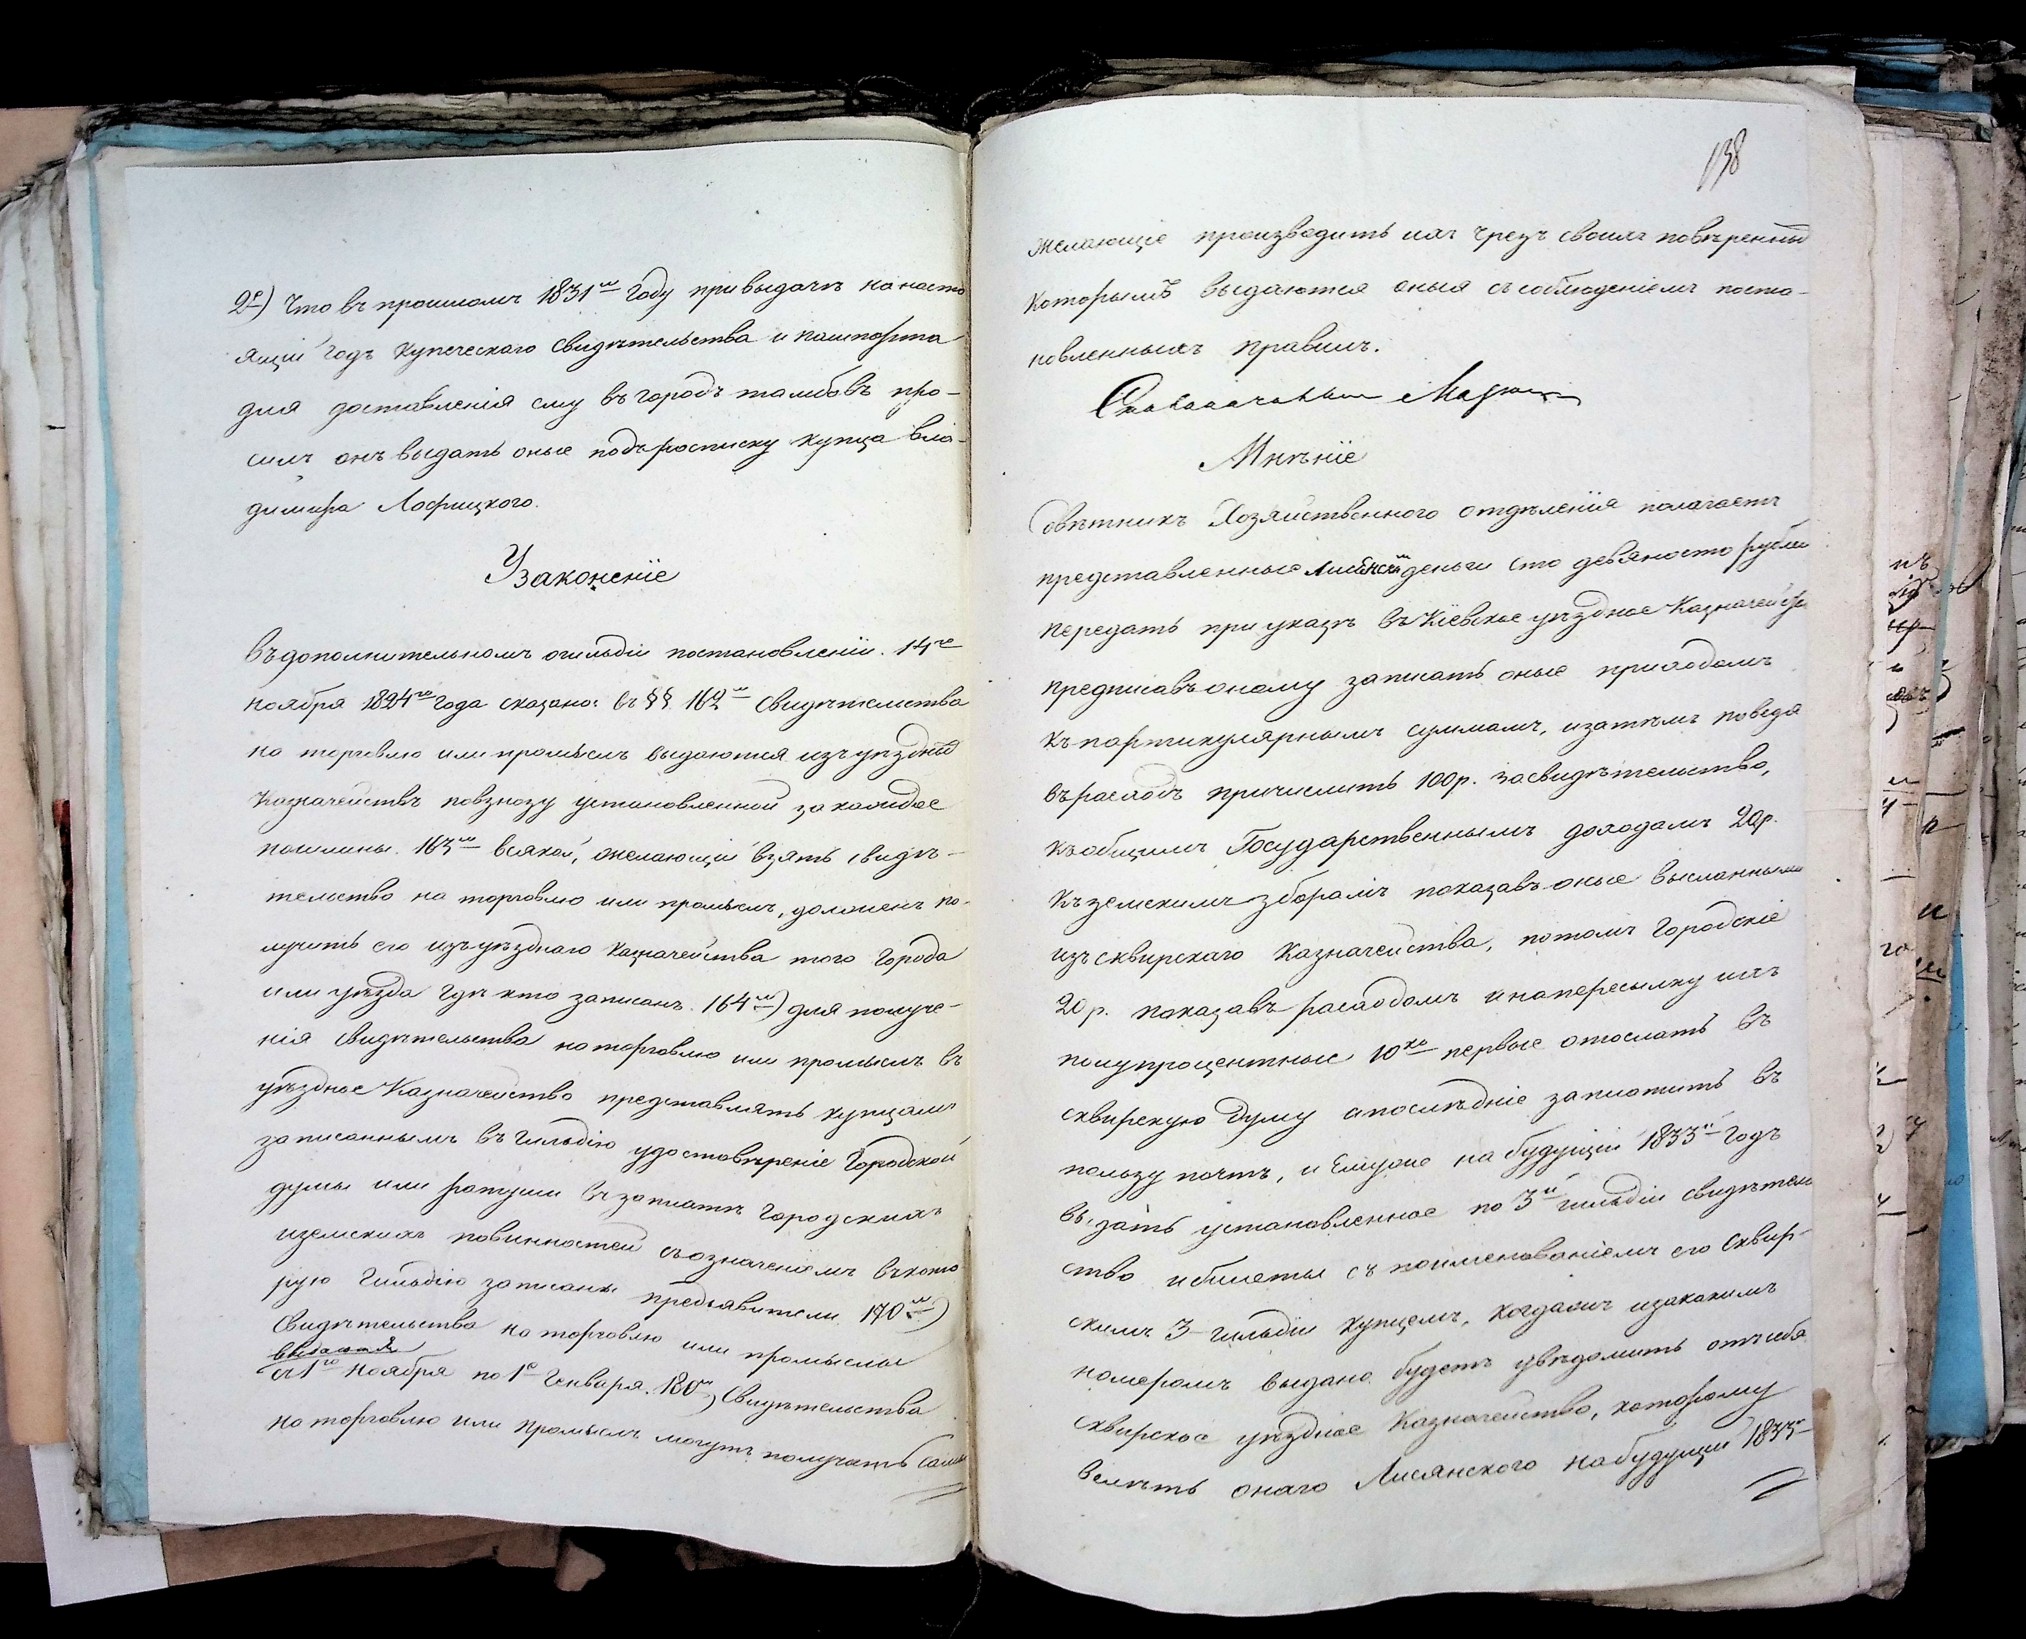 2е) Что въ прошломъ 1831м году при выдачѣ на насто
ящій годъ купеческаго свидѣтельства и пашпорта
для доставленія ему въ городъ тамбовъ про-
силъ онъ выдать оные подъ росписку купца Вла-
димира Лофицкого.
Узаконеніе
въ дополнительномъ о гильдіи постановленіи 14го
ноября 1824го года сказано: въ §§ 162м свидѣтельства
на торговлю или промыслъ выдаются изъ уѣздныхъ
Казначействъ по взносу установленной за каждое
пошлины. 163м всякой, желающій взять свидѣ-
тельство на торговлю или промыслъ, долженъ по-
лучить его изъ уѣзднаго казначейства того города
или уѣзда гдѣ кто записанъ. 164м) для получе-
нія свидѣтельства на торговлю или промыслъ въ
уѣздное Казначейство представлять купцамъ
записаннымъ въ гильдію удостовѣреніе Городской
думы или ратуши въ заплатѣ городскихъ
и земскихъ повинностей съ означеніемъ въ кото
рую гильдію записаны предъявители 170м)
Свидѣтельства на торговлю или промыслы
выдавать
съ 1го ноября по 1е Генваря. 180м) Свидѣтельства
на торговлю или промыслъ могутъ получать сами
138
желающіе производить ихъ чрезъ своихъ повѣренных
которымъ выдаются оныя съ соблюденіемъ поста-
новленныхъ правилъ.
Мнѣніе
Совѣтникъ Хозяйственного отдѣленія полагаетъ
представленные деньги сто девяносто рублей
передать при указѣ въ Кіевское уѣздное Казначейство
предписавъ оному записать оные приходомъ
къ партикулярнымъ суммамъ, и затѣмъ поведя
въ расходъ причислить 100р. за свидѣтельство,
къ общимъ Государственнымъ доходамъ 20р.
къ земскимъ зборамъ показавъ оные высланными
изъ сквирскаго Казначейства, потомъ городскіе
20р. показавъ расходомъ и на пересылку ихъ
полупроцентные 10ко первые отослать въ
сквирскую Думу а послѣдніе заплотить въ
пользу почтъ, и Ему же на будущій 1833й годъ
выдать установленное по 3й гильдіи свидѣтель
ство и билеты съ поименованіемъ его Сквир-
скимъ 3 гильдіи купцемъ, когда и за какимъ
номеромъ выдано будетъ увѣдомить отъ себя
сквирское уѣздное Казначейство, которому
велѣть онаго Лисянского на будущій 1833й